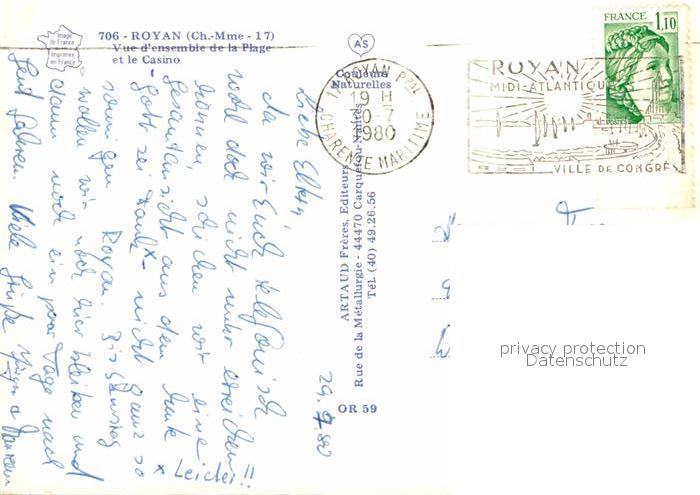 706 - ROYAN (Ch.-Mme - 17)
Vue d'ensemble de la Plage
et le Casino
Image de France
Imprimée en France
AS
Couleurs
Naturelles
17 ROYAN Pal
19 H
30-7
1980
CHARENTE MARITIME
ROYAN
MIDI-ATLANTIQUE
VILLE DE CONGRÈS
FRANCE
1,10
POSTES
ARTAUD Frères, Editeurs
Rue de la Métallurgie - 44470 Carquefou-Nantes
Tél. (40) 49.26.56
OR 59
29.7.80
Liebe Eltern,
da wir Euch telefonisch
wohl doch nicht mehr erreichen
können, schicken wir eine
Gesamtansicht aus dem heute
- Gott sei Dank x - nicht ganz so
sonnigen Royan. Bis Samstag
wollen wir noch hier bleiben und
dann noch ein paar Tage nach
fahren. Viele Grüße
x Leider!!
privacy protection
Datenschutz